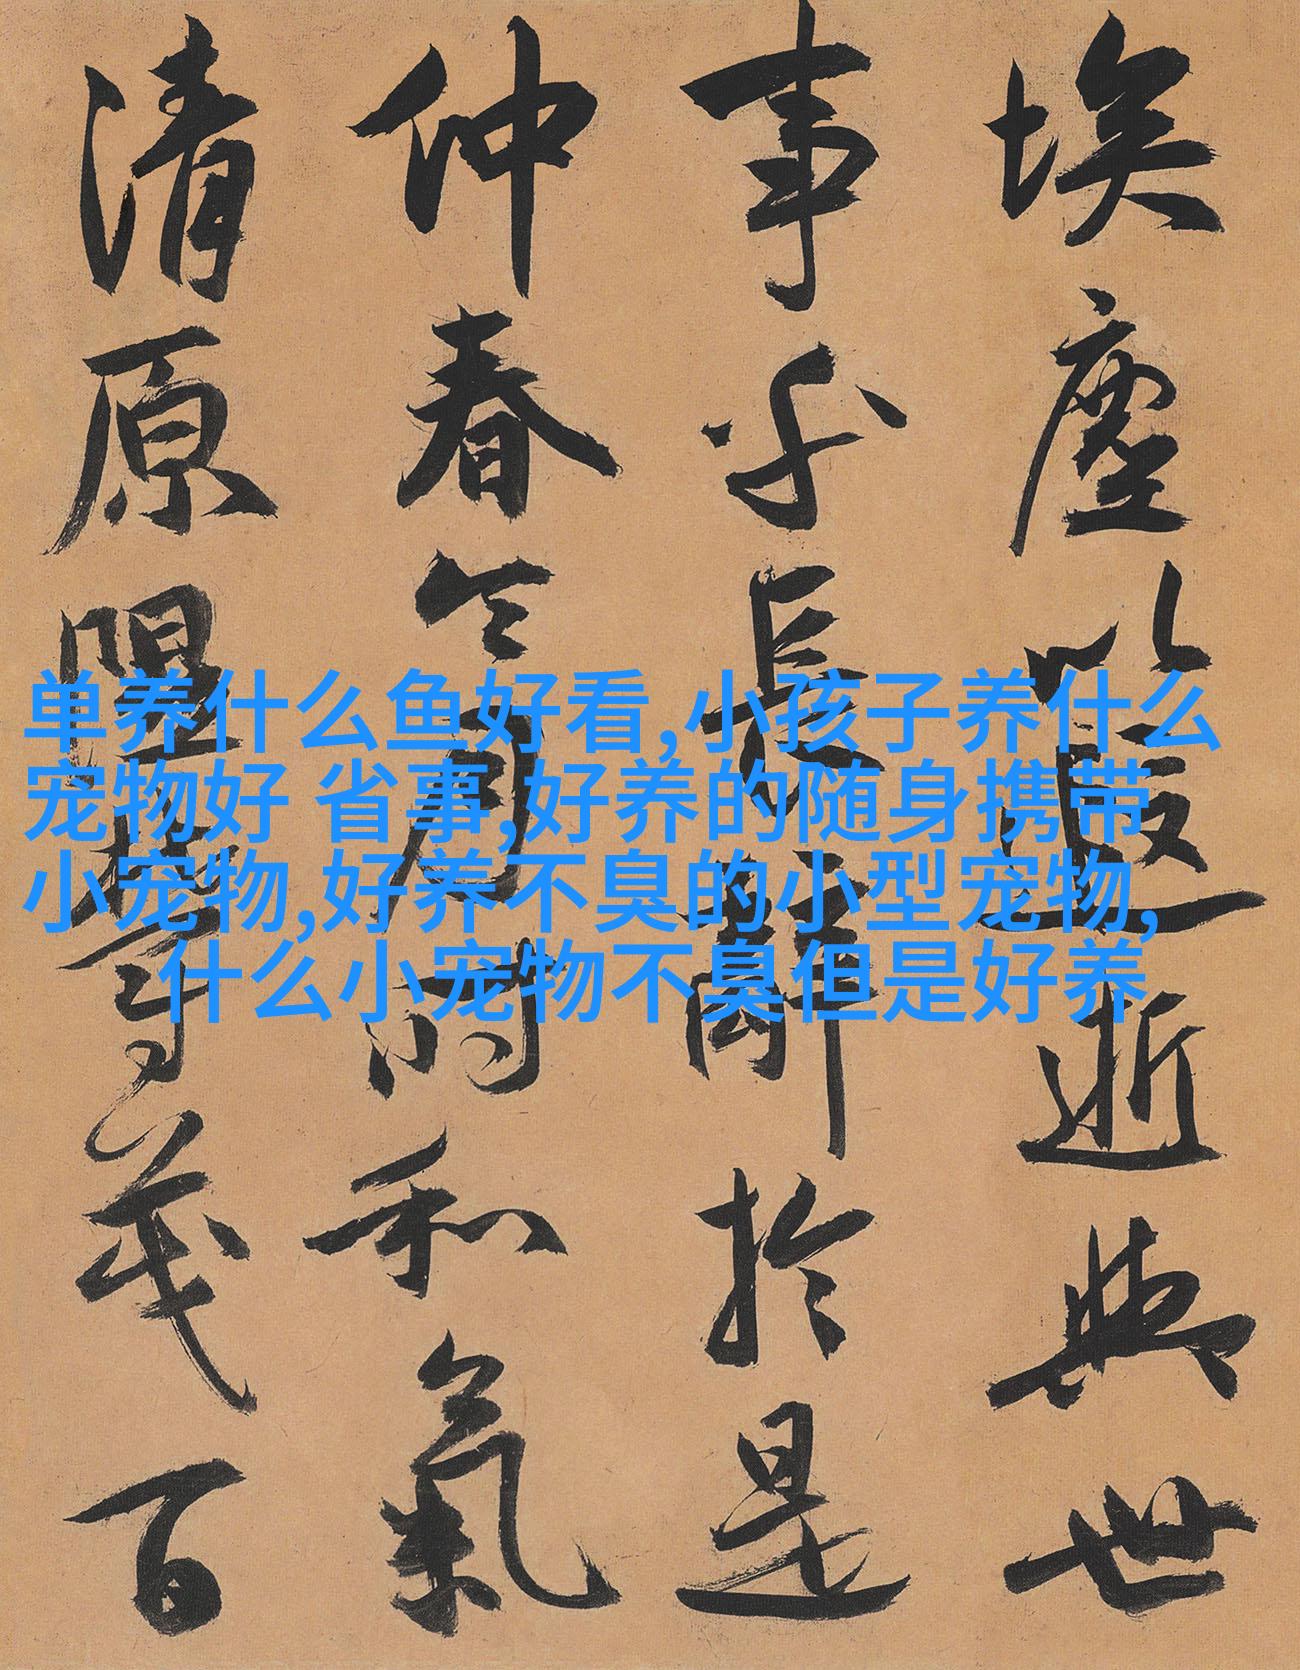 埃塵以遐逝與世
事乎長辭於是
仲春令月時和氣
清原隰鬱茂百
单养什么鱼好看,小孩子养什么
宠物好 省事,好养的随身携带
小宠物,好养不臭的小型宠物,
什么小宠物不臭但是好养